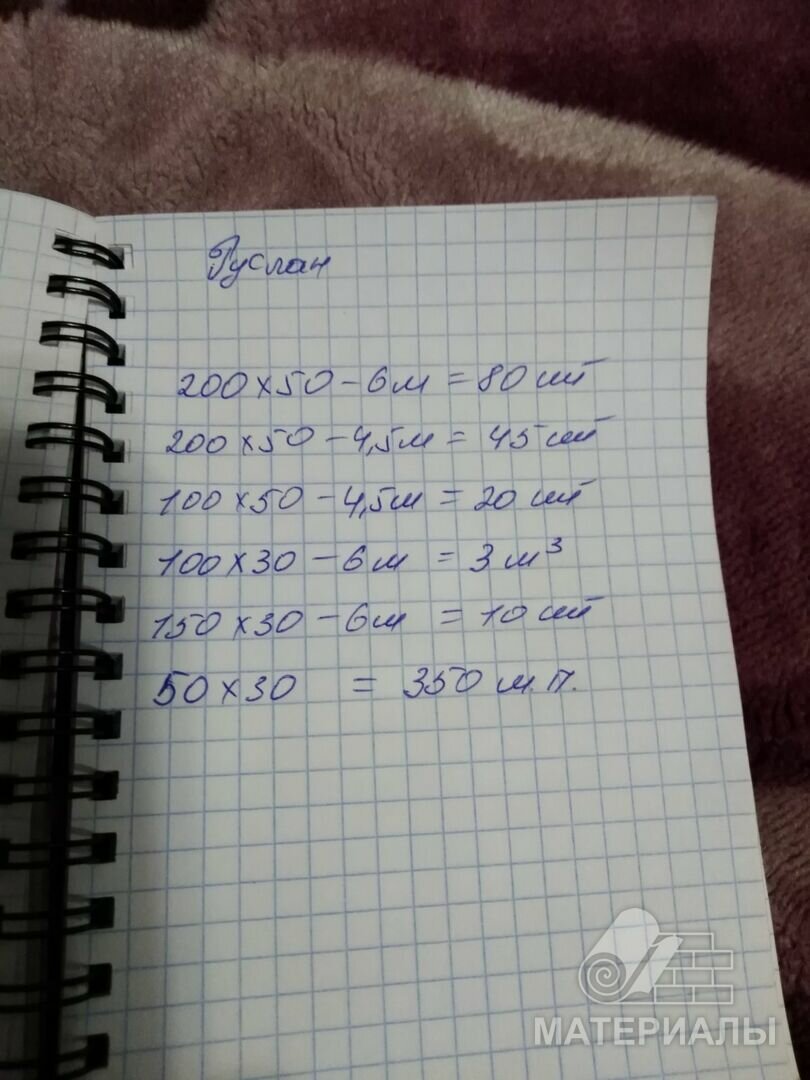 Руслан
200×50-6м = 80 шт
200×50-4,5м = 45 шт
100×50-4,5м = 20 шт
100×30-6м = 3 м³
150×30-6м = 10 шт
50×30 = 350 м.п.
МАТЕРИАЛЫ